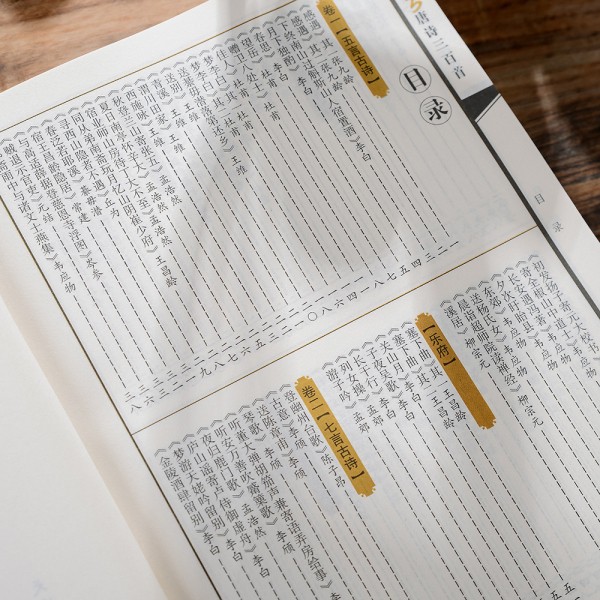 唐诗三百首
目录
目录
卷一【五言古诗】
《感遇·其一》张九龄
《感遇·其二》张九龄
《下终南山过斛斯山人宿置酒》李白
《月下独酌》李白
《春思》李白
《望岳》杜甫
《赠卫八处士》杜甫
《佳人》杜甫
《梦李白·其一》杜甫
《梦李白·其二》杜甫
《送綦毋潜落第还乡》王维
《送别》王维
《青溪》王维
《渭川田家》王维
《西施咏》王维
《秋登兰山寄张五》孟浩然
《夏日南亭怀辛大》孟浩然
《宿业师山房待丁大不至》孟浩然
《同从弟南斋玩月忆山阴崔少府》王昌龄
《寻西山隐者不遇》丘为
《春泛若耶溪》綦毋潜
《宿王昌龄隐居》常建
《与高适薛据登慈恩寺浮图》岑参
《贼退示官吏》元结
雨中与诸文士燕集》韦应物
《初发扬子寄元大校书》韦应物
《寄全椒山中道士》韦应物
《长安遇冯著》韦应物
《夕次盱眙县》韦应物
《东郊》韦应物
《送杨氏女》韦应物
《晨诣超师院读禅经》柳宗元
《溪居》柳宗元
【乐府】
《塞下曲·其一》王昌龄
《塞下曲·其二》王昌龄
《关山月》李白
《子夜吴歌》李白
《长干行》李白
《列女操》孟郊
《游子吟》孟郊
卷二【七言古诗】
《登幽州台歌》陈子昂
《古意》李颀
《送陈章甫》李颀
《琴歌》李颀
《听董大弹胡笳声兼寄语弄房给事》李颀
《听安万善吹觱篥歌》李颀
《夜归鹿门歌》孟浩然
《庐山谣寄卢侍御虚舟》李白
《梦游天姥吟留别》李白
《金陵酒肆留别》李白